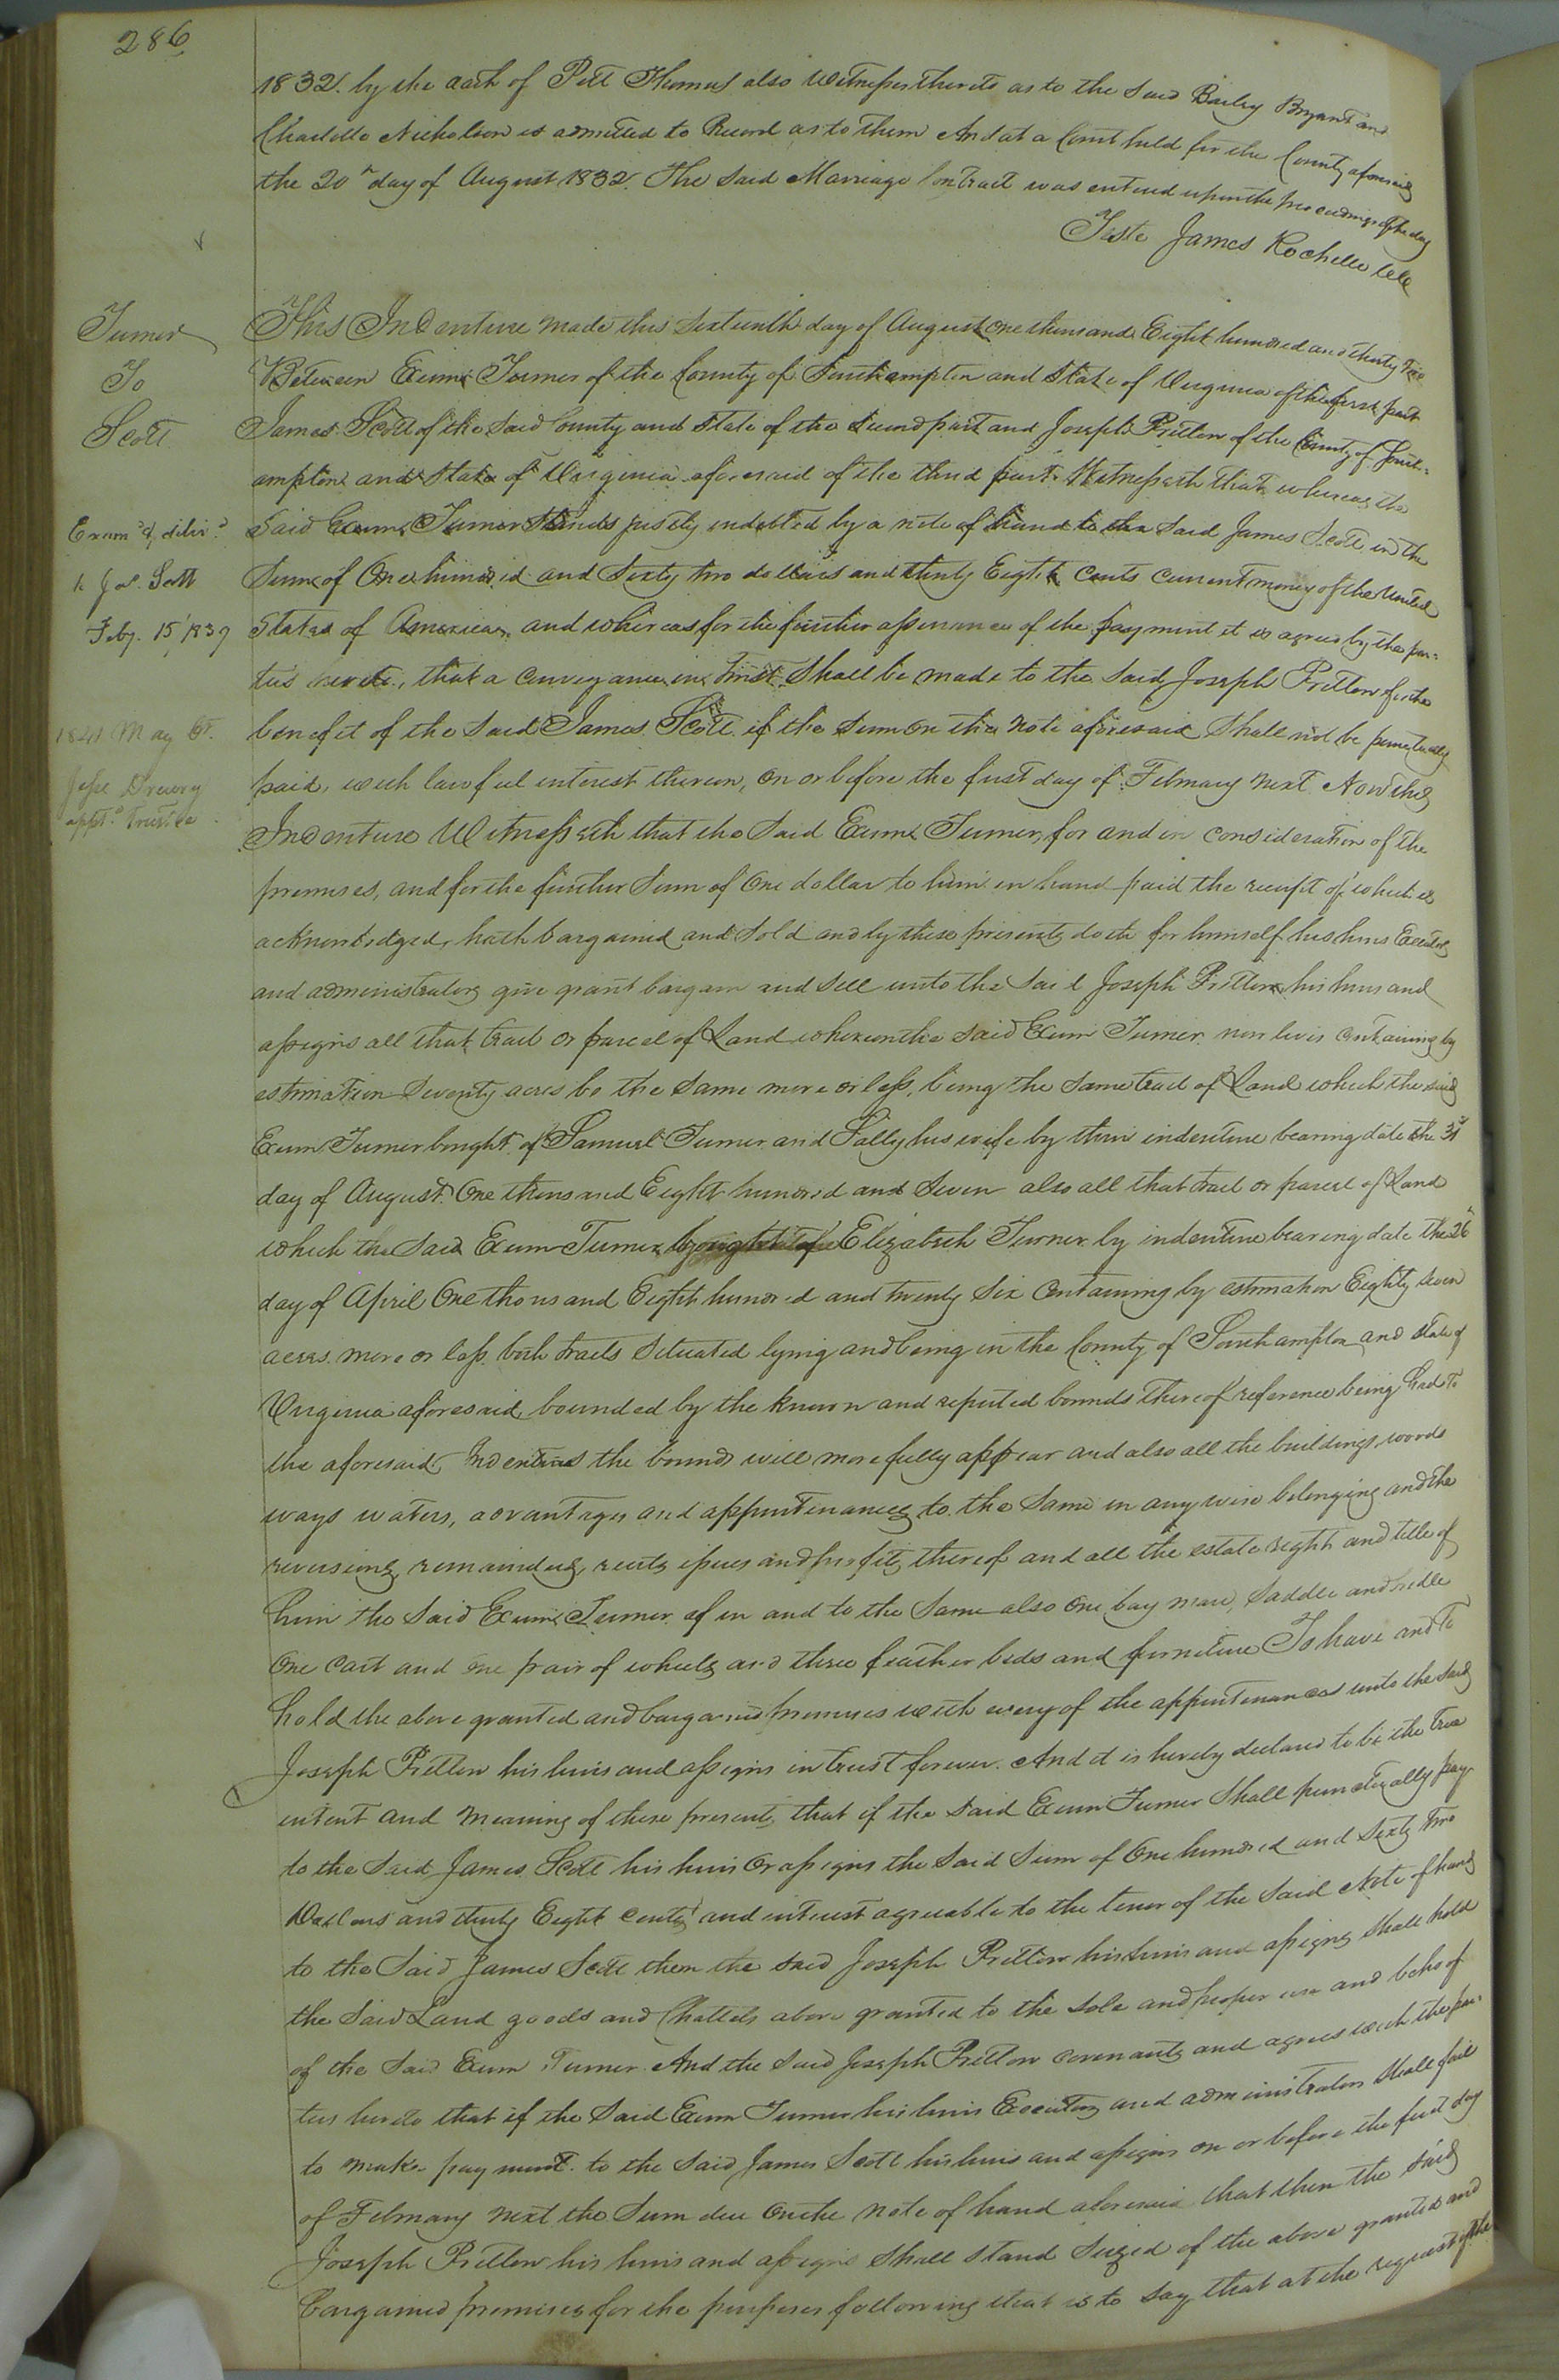 286
1832. by the oath of Pitt Thomas also Witness thereto as to the said Bailey Bryant and
Charlotte Nicholson is admitted to Record as to them And at a Court held for the County aforesaid
the 20th day of August 1832. The said Marriage Contract was entered upon the proceedings of the day
Teste James Rochelle Clk
Turner
To
Scott
This Indenture made this Sixteenth day of August one thousand Eight hundred and thirty two
Between Exum Turner of the County of Southampton and State of Virginia of the first part
James Scott of the said County and State of the second part and Joseph Pretlow of the County of South=
ampton and State of Virginia aforesaid of the third part. Witnesseth that whereas the
Said Exum Turner Stands justly indebted by a note of hand to the Said James Scott in the
Sum of One hundred and Sixty two dollars and thirty Eight cents current money of the United
States of America, and whereas for the further assurance of the payment it is agreed by the par=
ties hereto, that a conveyance in trust Shall be made to the said Joseph Pretlow for the
benefit of the said James Scott if the sum on the note aforesaid Shall not be punctually
paid, with lawful interest thereon, on or before the first day of February next Now this
Indenture Witnesseth that the Said Exum Turner, for and in consideration of the
premises, and for the further Sum of One dollar to him in hand paid the receipt of which is
acknowledged, hath bargained and Sold and by these presents doth for himself his heirs Executors
and administrators give grant bargain and Sell unto the Said Joseph Pretlow his heirs and
assigns all that tract or parcel of Land whereon the said Exum Turner now lives containing by
estimation Seventy acres be the same more or less, being the same tract of Land which the said
Exum Turner bought of Samuel Turner and Sally his wife by their indenture bearing date the 31st
day of August One thousand Eight hundred and Seven also all that tract or parcel of Land
which the Said Exum Turner bought of Elizabeth Turner by indenture bearing date the 26th
day of April One thousand Eight hundred and twenty Six Containing by estimation Eighty Seven
acres more or less both tracts Situated lying and being in the County of Southampton and State of
Virginia aforesaid, bounded by the known and reputed bounds thereof reference being had to
the aforesaid Indentures the bounds will more fully appear and also all the buildings, woods
ways waters, advantages and appurtenances to the same in any wise belonging and the
reversions, remainders, rents issues and profits thereof and all the estate right and title of
him the Said Exum Turner of in and to the Same also One bay mare, Saddle and bridle
One cart and one pair of wheels and three feather beds and furniture To have and to
hold the above granted and bargained premises with every of the appurtenances unto the said
Joseph Pretlow his heirs and assigns in trust forever. And it is hereby declared to be the true
intent and meaning of these presents, that if the said Exum Turner Shall punctually pay
to the Said James Scott his heirs Or assigns the Said Sum of One hundred and Sixty two
Dollars and thirty Eight cents and interest agreeable to the tenor of the Said Note of hand
to the Said James Scott then the said Joseph Pretlow his heirs and assigns Shall hold
the Said Land goods and Chattels above granted to the sole and proper use and behoof
of the Said Exum Turner. And the Said Joseph Pretlow covenants and agrees with the par=
ties hereto that if the Said Exum Turner his heirs Executors and administrators Shall fail
to make payment to the Said James Scott his heirs and assigns on or before the first day
of February next the Sum due on the note of hand aforesaid that then the said
Joseph Pretlow his heirs and assigns Shall Stand Seized of the above granted and
bargained premises for the purposes following that is to Say, that at the request of the
Examd & delivd
to Jas. Scott
Feby. 15, 1839
1841 May Ct.
Jesse Drewry
apptd. Trustee